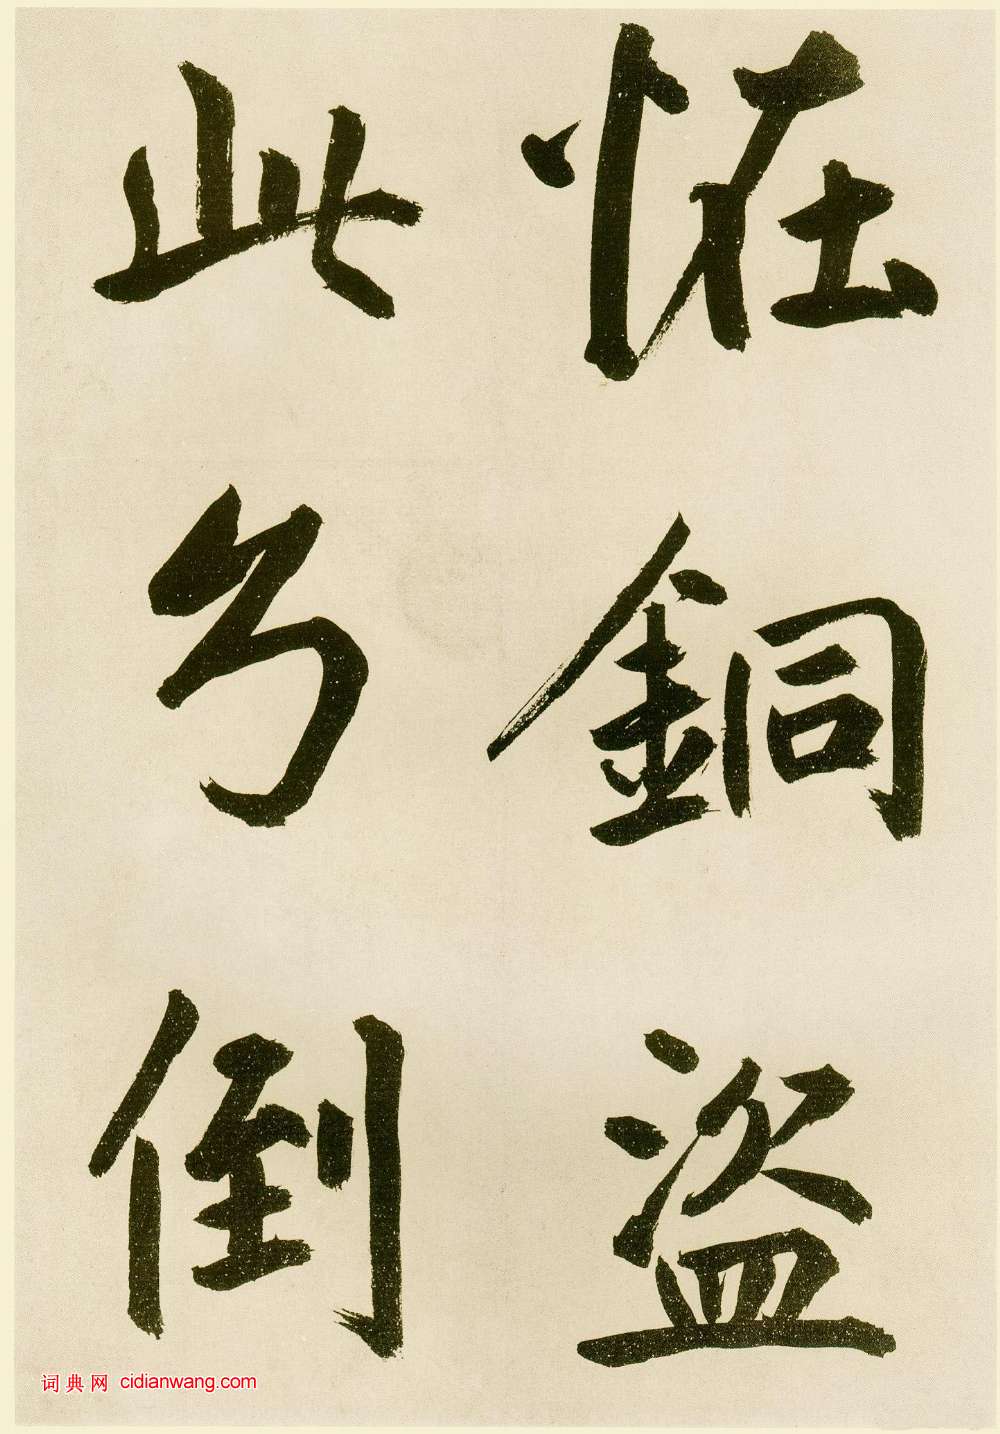 恠銅盜
此乃倒
词典网 cidianwang.com